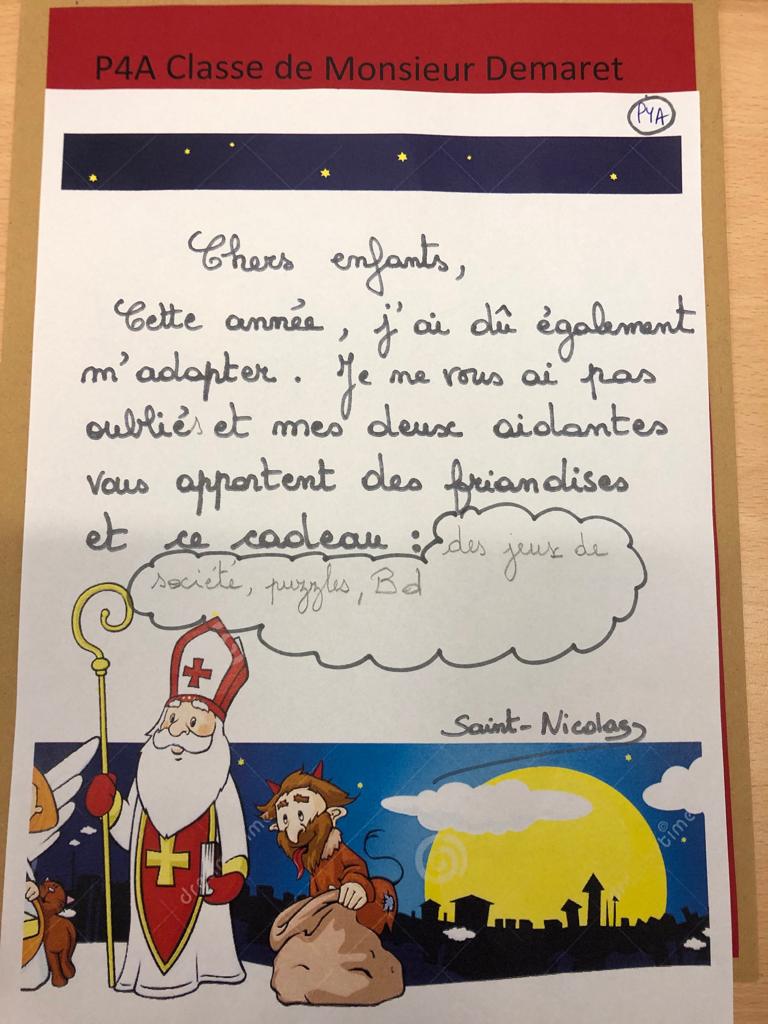 P4A Classe de Monsieur Demaret
P4A
Chers enfants,
Cette année, j'ai dû également
m'adapter. Je ne vous ai pas
oubliés et mes deux aidantes
vous apportent des friandises
et ce cadeau : des jeux de
société, puzzles, Bd
Saint-Nicolas